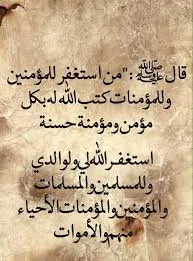 قال ﷺ :"من استغفر للمؤمنين
وللمؤمنات كتب الله له بكل
مؤمن ومؤمنة حسنة
استغفر الله لي ولوالدي
وللمسلمين والمسلمات
والمؤمنين والمؤمنات الأحياء
منهم والأموات